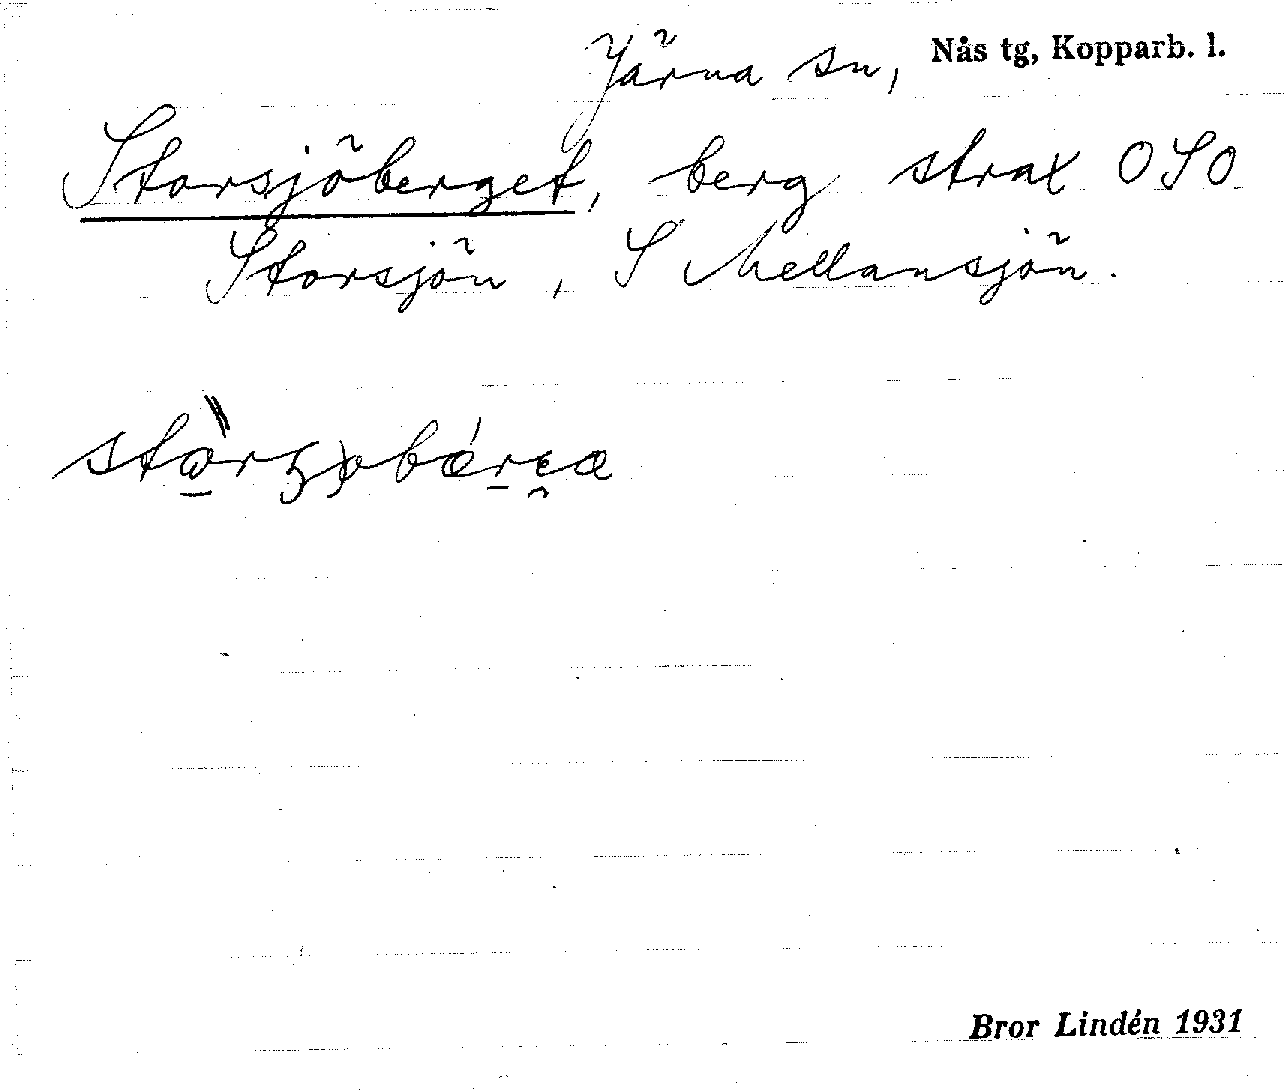 Järna sn, Nås tg, Kopparb. l.
Storsjöberget, berg strax OSO
Storsjön, S Mellansjön.
Bror Lindén 1931